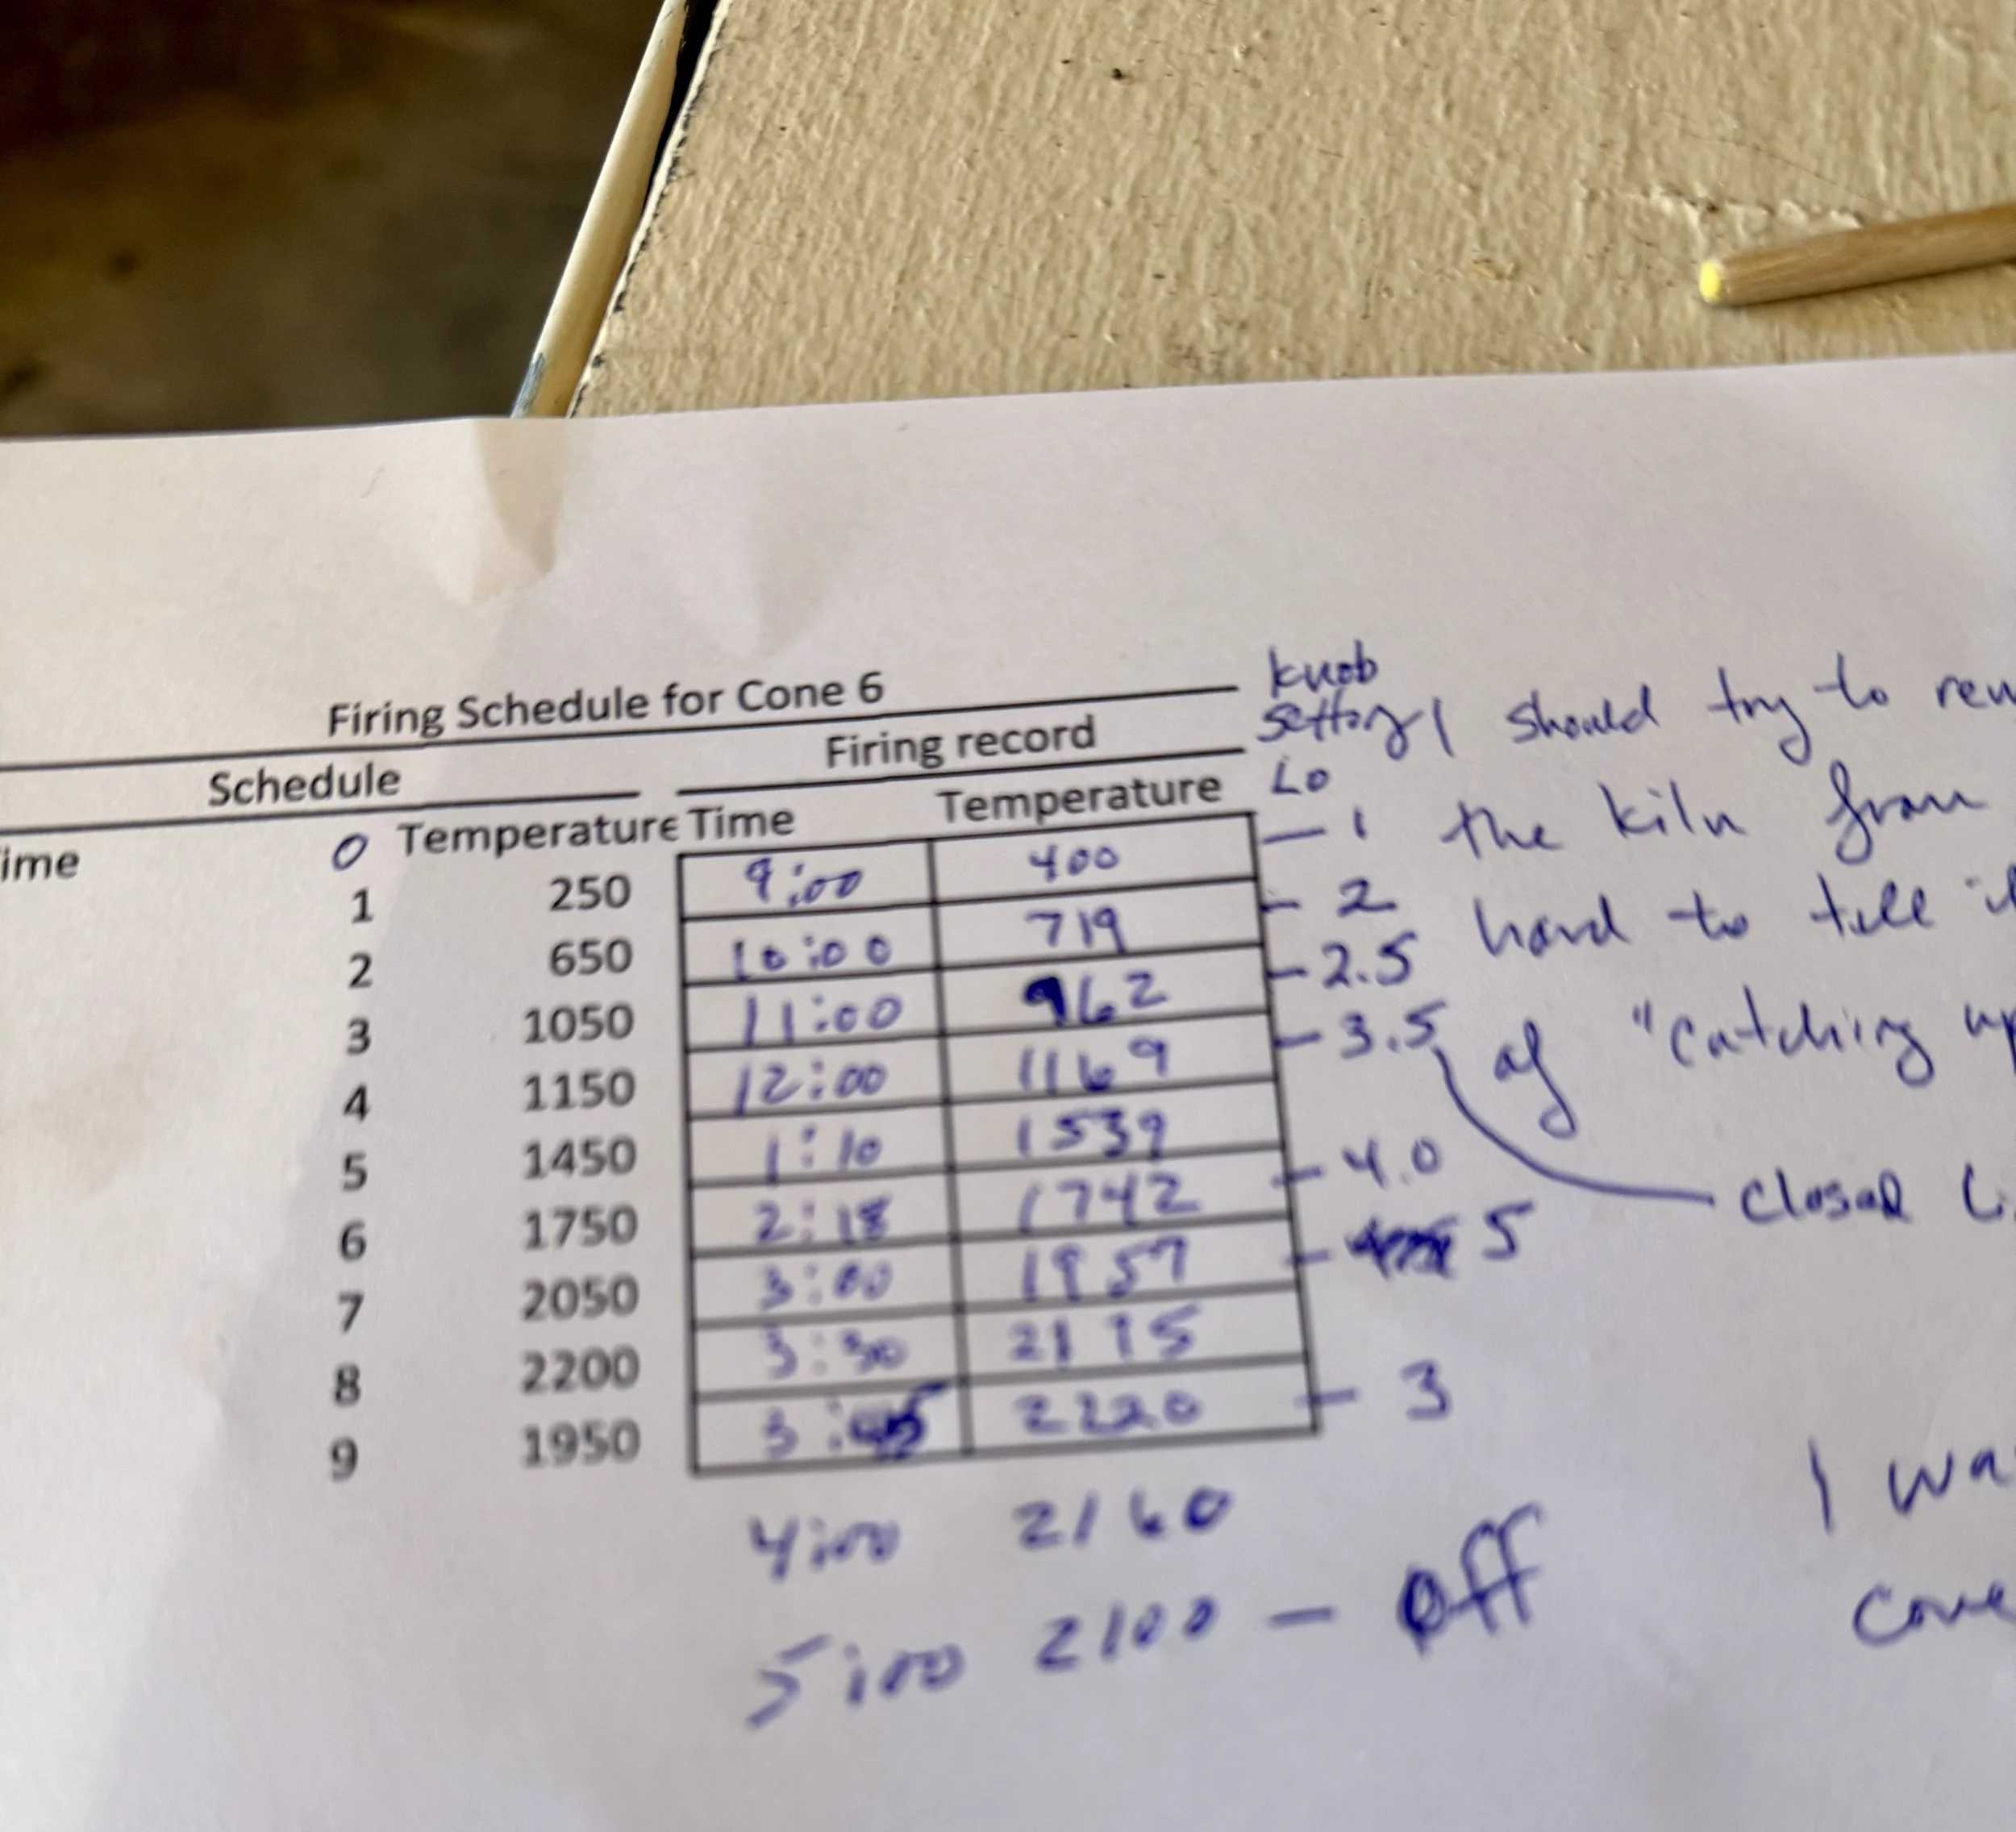 knob
Firing Schedule for Cone 6 setting I should try to
Schedule Firing record Lo
ime 0 Temperature Time Temperature — 1 the kiln from
1 250 9:00 400 — 2 hard to tell
2 650 10:00 719 — 2.5
3 1050 11:00 962 — 3.5 of "catching up
4 1150 12:00 1169
5 1450 1:10 1539 — 4.0 closed
6 1750 2:18 1742 — 5
7 2050 3:00 1957
8 2200 3:30 2195 — 3
9 1950 3:45 2220
4:00 2160
5:00 2100 — off